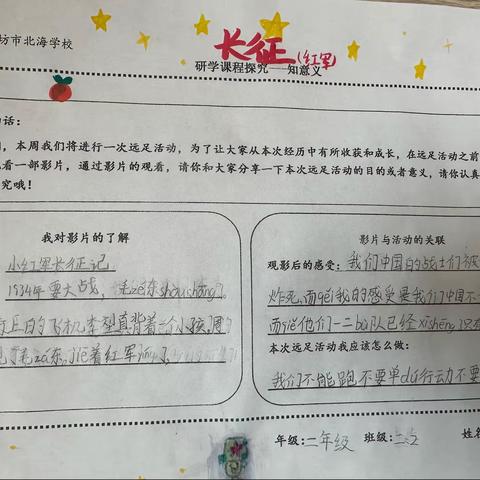 坊市北海学校
长征(红军)
研学课程探究——知意义
话:
,本周我们将进行一次远足活动,为了让大家从本次经历中有所收获和成长,在远足活动之前
看一部影片,通过影片的观看,请你和大家分享一下本次远足活动的目的或者意义,请你认真
究哦!
我对影片的了解
小红军长征记
1934年要大战,毛zé东shòushāng了。
上的飞机李型真背着一个小孩,周
毛zé东,jiē着红军
影片与活动的关联
观影后的感受:我们中国的战士们被
炸死,而qiě我的感受是我们中国不
而qiě他们一二bù队已经xīshēng只
本次远足活动我应该怎么做:
我们不能跑不要单dú行动不要
年级:二年级 班级:二.2 姓名